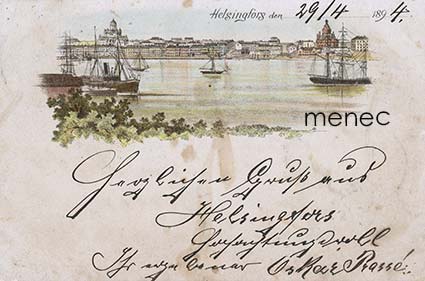 Helsingfors den 29/4 1894.
menec
Herzlichen Gruß aus
Helsingfors
Hochachtungsvoll
Ihr ergebener Oskar